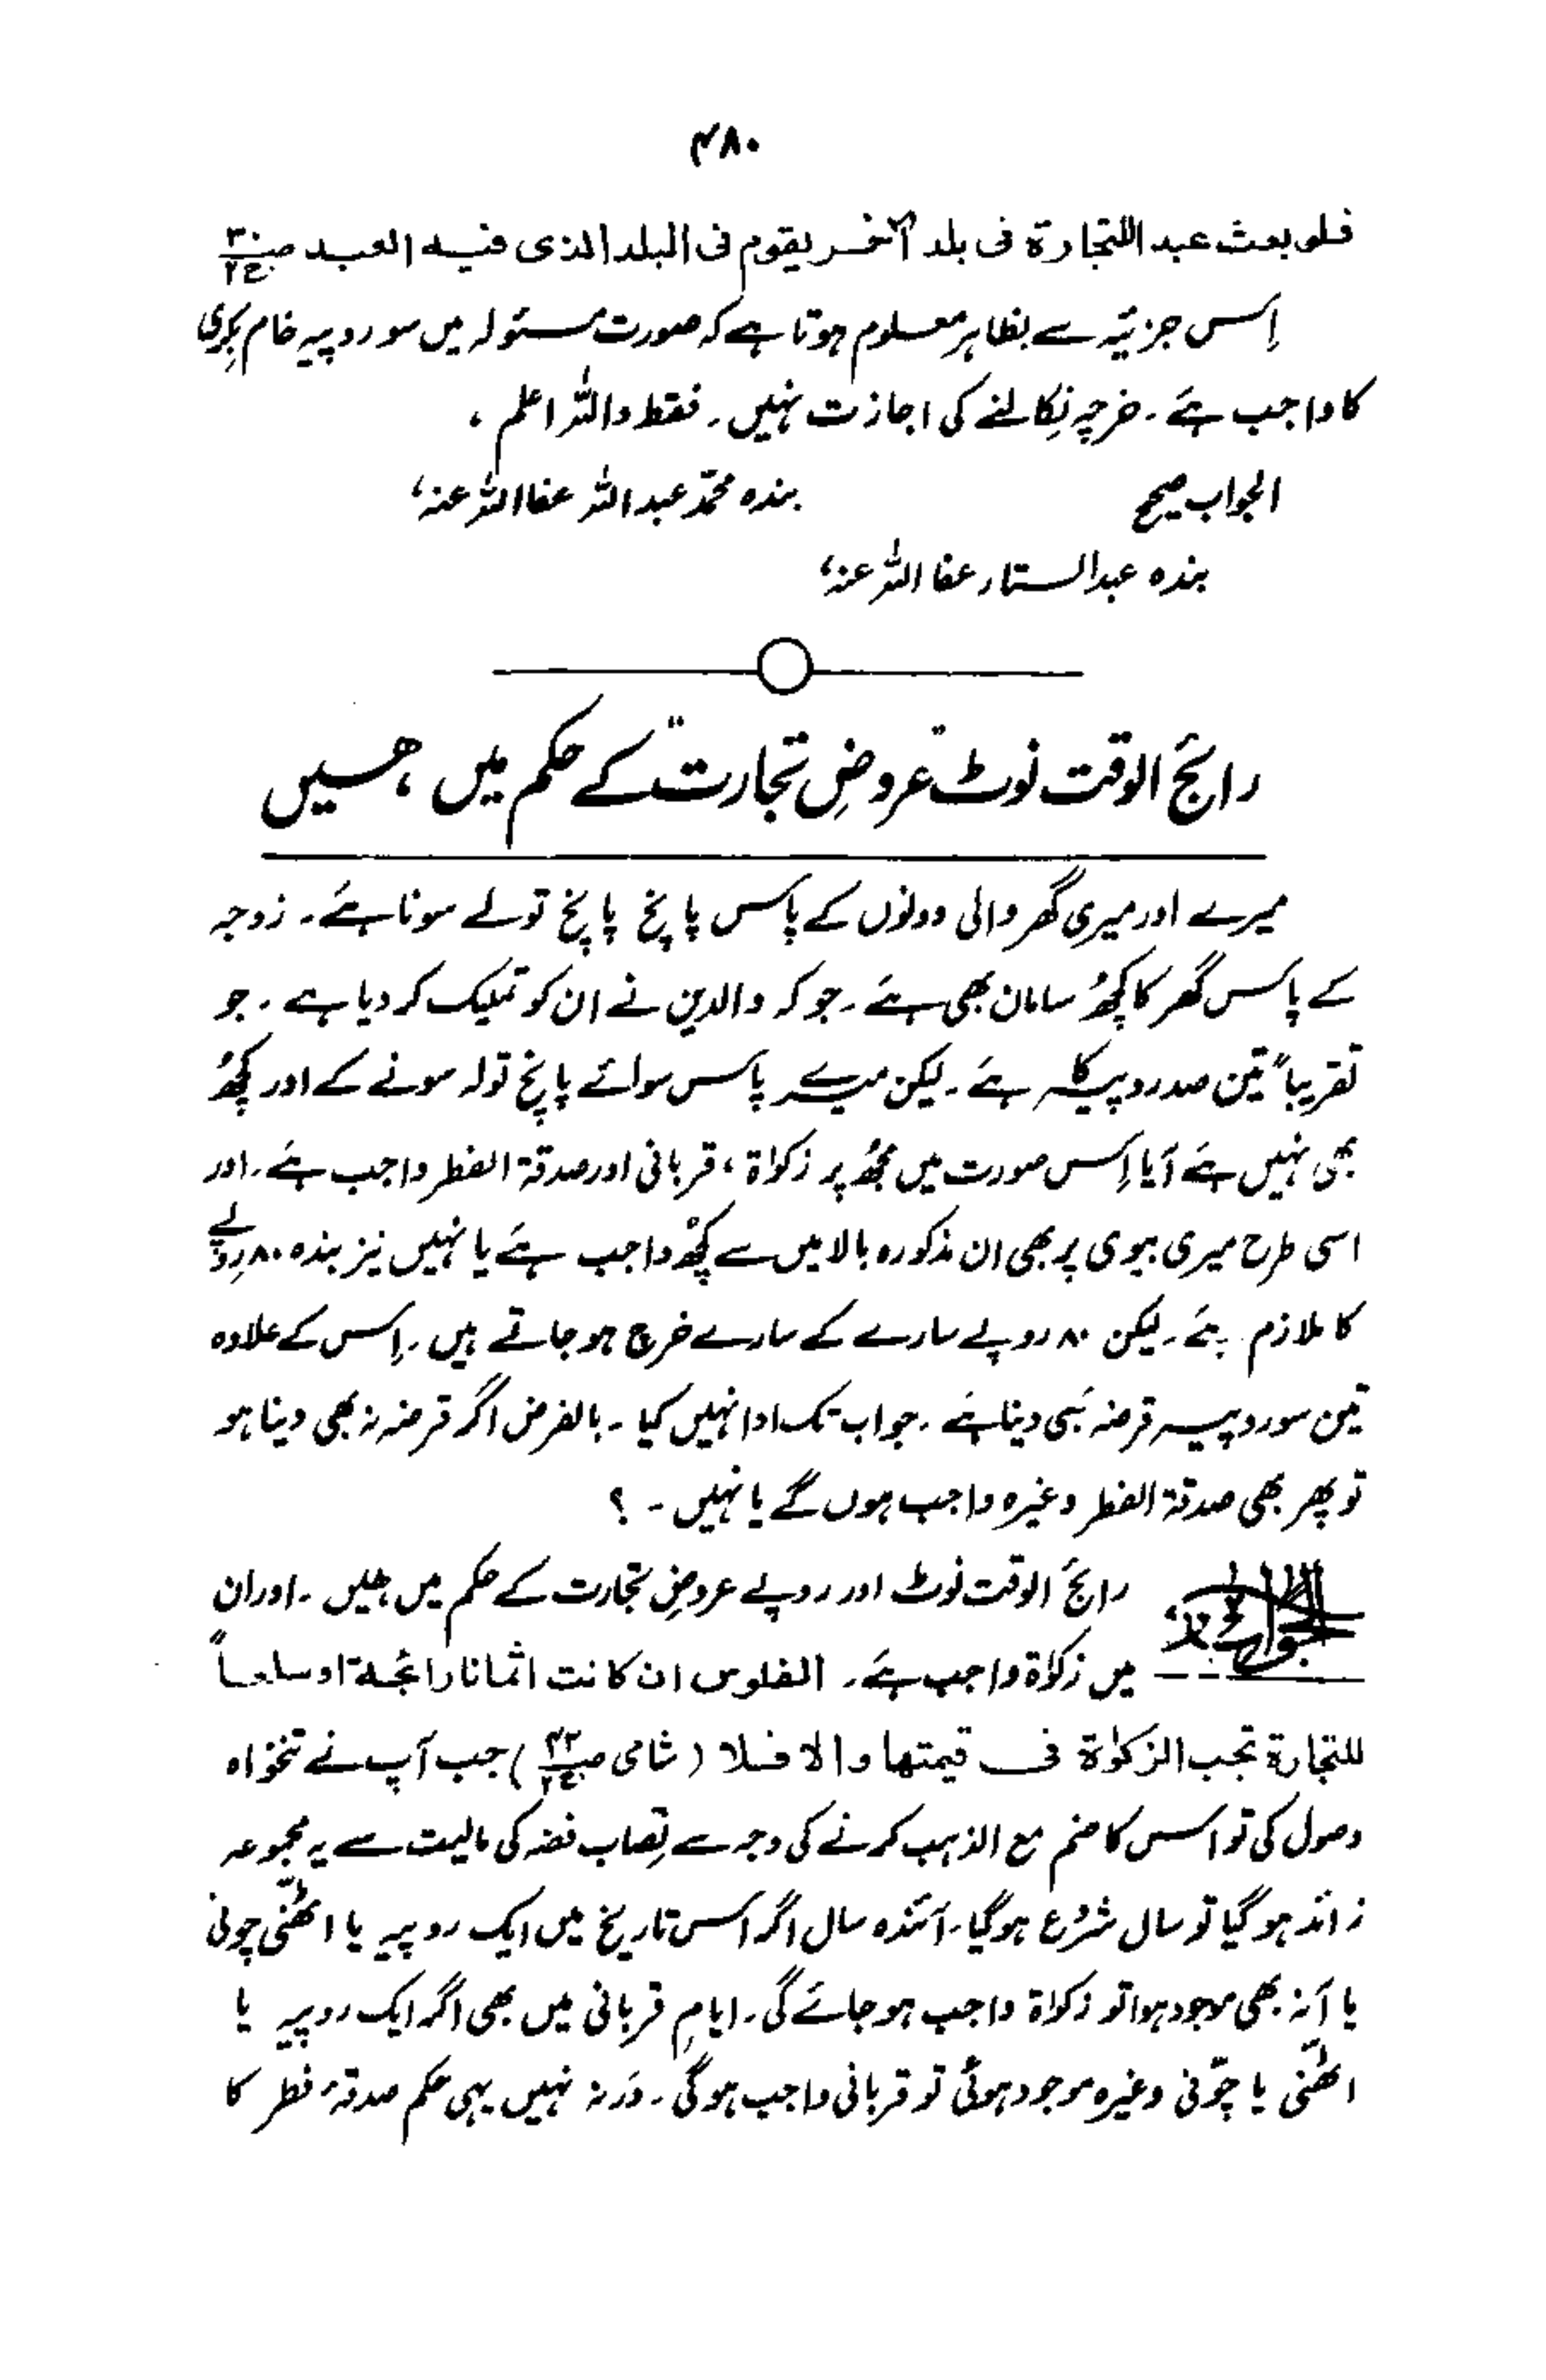 ۴۸۰
فلو بعث عبد اللتجارة فی بلد آخر یقوم فی البلد الذی فیہ العبد ص۳۰ ج۲
اِس جزئیّہ سے بظاہر معلوم ہوتا ہے کہ صورت مسئولہ میں سو روپیہ خام بِکری
کا واجب ہے۔ خرچہ نِکالنے کی اجازت نہیں۔ فقط واللہ اعلم ،
الجواب صحیح بندہ محمّد عبداللہ عفااللہ عنہ،
بندہ عبدالستار عفا اللہ عنہ،
رائج الوقت نوٹ "عروضِ تجارت" کے حکم میں ہیں
میرے اور میری گھر والی دونوں کے پاس پانچ پانچ تولے سونا ہے۔ زوجہ
کے پاس گھر کا کچھُ سامان بھی ہے۔ جو کہ والدین نے ان کو تملیک کر دیا ہے۔ جو
تقریباً تین صد روپیہ کا ہے۔ لیکن میرے پاس سوائے پانچ تولہ سونے کے اور کچھُ
بھی نہیں ہے آیا اِس صورت میں مجھُ پر زکواۃ ، قربانی اور صدقۃ الفطر واجب ہے۔ اور
اسی طرح میری بیوی پر بھی ان مذکورہ بالا میں سے کچھُ واجب ہے یا نہیں نیز بندہ ۸۰ روپے
کا ملازم ہے۔ لیکن ۸۰ روپے سارے کے سارے خرچ ہو جاتے ہیں۔ اِس کے علاوہ
تین سو روپیہ قرضہ بھی دینا ہے۔ جو اب تک ادا نہیں کیا۔ بالفرض اگر قرضہ نہ بھی دینا ہو
تو پھر بھی صدقۃ الفطر وغیرہ واجب ہوں گے یا نہیں۔ ؟
الجواب رائج الوقت نوٹ اور روپے عروضِ تجارت کے حکم میں ہیں۔ اور ان
میں زکوٰۃ واجب ہے۔ الفلوس ان کانت اثمانا رائجۃ او سلعاً
للتجارۃ تجب الزکوٰۃ فی قیمتھا والا فلا (شامی ص۴۲ ج۲) جب آپ نے تنخواہ
وصول کی تو اس کا ضم مع الذہب کرنے کی وجہ سے نِصاب فضہ کی مالیت سے یہ مجموعہ
زائد ہو گیا تو سال شروع ہوگیا۔ آئندہ سال اگر اس تاریخ میں ایک روپیہ یا اٹھنّی چونی
یا آنہ بھی موجود ہوا تو زکواۃ واجب ہو جائے گی۔ ایامِ قربانی میں بھی اگر ایک روپیہ یا
اٹھنّی یا چوّنی وغیرہ موجود ہوئی تو قربانی واجب ہوگی۔ ورنہ نہیں یہی حکم صدقۂ فطر کا